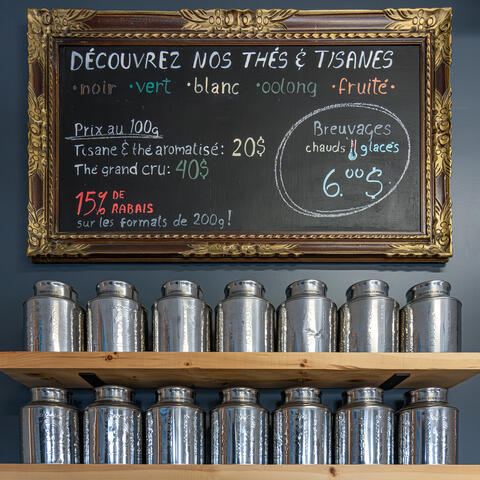 DÉCOUVREZ NOS THÉS & TISANES
·noir ·vert ·blanc ·oolong ·fruité·
Prix au 100g
Tisane & thé aromatisé: 20$
Thé grand cru: 40$
15% DE RABAIS
sur les formats de 200g!
Breuvages
chauds glacés
6.00$